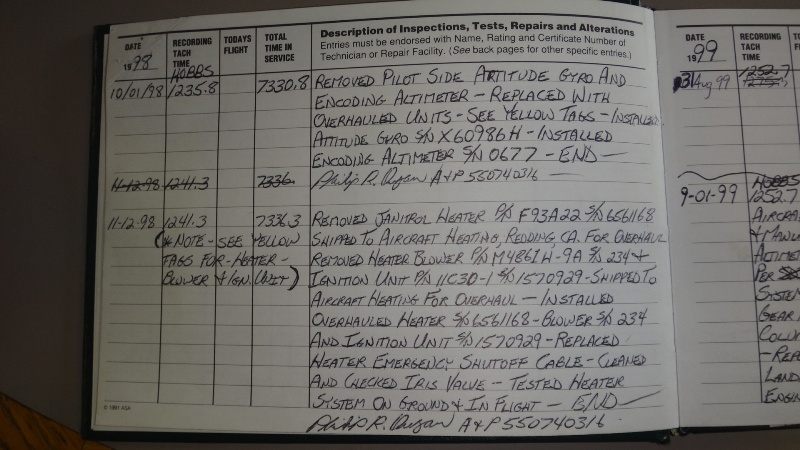 DATE
1998
RECORDING
TACH
TIME
HOBBS
TODAYS
FLIGHT
TOTAL
TIME IN
SERVICE
Description of Inspections, Tests, Repairs and Alterations
Entries must be endorsed with Name, Rating and Certificate Number of
Technician or Repair Facility. (See back pages for other specific entries.)
10/01/98 1235.8 7330.8 REMOVED PILOT SIDE ATTITUDE GYRO AND
ENCODING ALTIMETER - REPLACED WITH
OVERHAULED UNITS - SEE YELLOW TAGS - INSTALLED
ATTITUDE GYRO S/N X60986H - INSTALLED
ENCODING ALTIMETER S/N 0677 - END -
11-12-98 1241.3 7336. Philip R. A+P 550740316 -
11-12-98 1241.3 7336.3 REMOVED JANITROL HEATER P/N F93A22 S/N 6561168
(* NOTE - SEE YELLOW SHIPPED TO AIRCRAFT HEATING, REDDING, CA. FOR OVERHAUL
TAGS FOR - HEATER - REMOVED HEATER BLOWER P/N M4861H-9A S/N 234 +
BLOWER + IGN. UNIT) IGNITION UNIT P/N 11C30-1 S/N 1570929 - SHIPPED TO
AIRCRAFT HEATING FOR OVERHAUL - INSTALLED
OVERHAULED HEATER S/N 6561168 - BLOWER S/N 234
AND IGNITION UNIT S/N 1570929 - REPLACED
HEATER EMERGENCY SHUTOFF CABLE - CLEANED
AND CHECKED IRIS VALVE - TESTED HEATER
SYSTEM ON GROUND + IN FLIGHT - END -
Philip R. A+P 550740316 -
© 1991 ASA
DATE
1999
RECORDING
TACH
TIME
31 Aug 99 1252.7
HOBBS
9-01-99 1252.7
AIRCRA
+ MANU
ALTIMET
PER
SYSTEM
GEAR
COLU
- REP
LAND
ENGIN